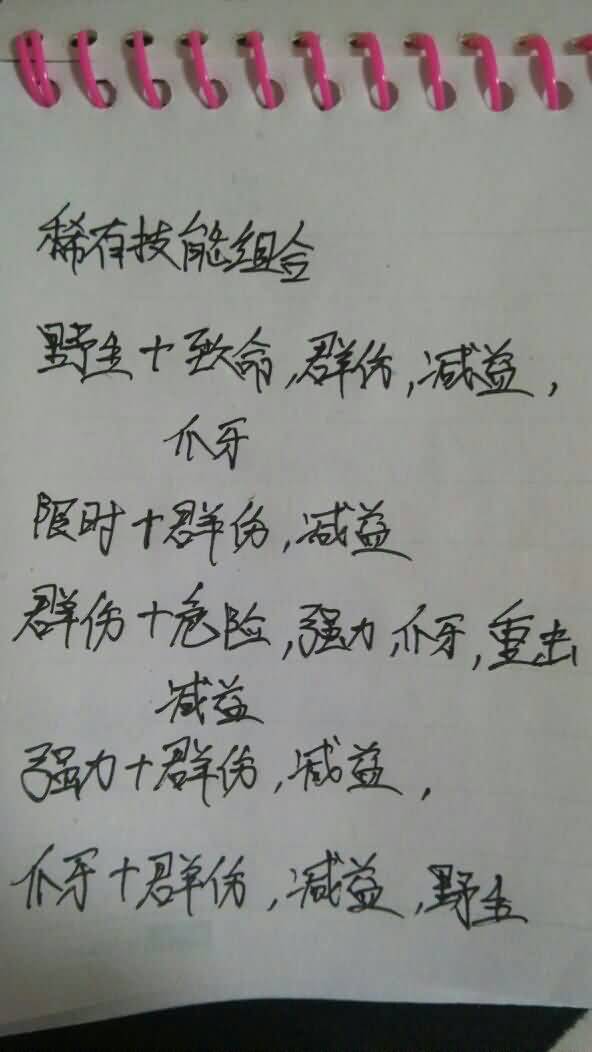 稀有技能组合
野生+致命,群伤,减益,
爪牙
限时+群伤,减益
群伤+危险,强力,爪牙,重击
减益
强力+群伤,减益,
爪牙+群伤,减益,野生